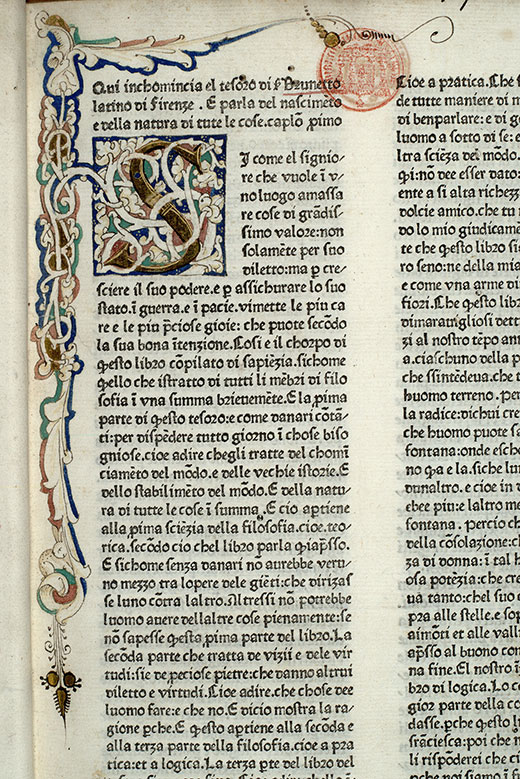 Qui inchomincia el tesoro di s̃ Brunetto
latino di firenze . E parla del nascimẽto
e della natura di tute le cose. caplo p̃imo
SI come el signio-
re che vuole ĩ v-
no luogo amassa
re cose di grãdis
simo valore: non
solamẽte per suo
diletto: ma ꝑ cre-
sciere il suo podere. e ꝑ assichurare lo suo
stato. ĩ guerra. e ĩ pacie. vimette le piu ca
re e le piu p̃ciose gioie: che puote secõdo
la sua bona ĩtenzione. Cosi e il chorpo di
questo libro cõpilato di sapiẽzia. sichome
quello che istratto di tutti li mẽbri di filo
sofia ĩ vna summa brieuemẽte. E la p̃ima
parte di questo tesoro: e come danari cõtã-
ti: per dispẽdere tutto giorno ĩ chose biso
gniose. cioe adire chegli tratte del chomĩ
ciamẽto del mõdo. e delle vechie istorie. E
dello stabilimẽto del mõdo. E della natu-
ra di tutte le cose ĩ summa. E cio aptiene
alla p̃ima sciẽzia della filosofia. cioe. teo-
rica. secõdo cio chel libro parla quiap̃sso.
E sichome senza danari nõ aurebbe veru-
no mezzo tra lopere dele giẽti: che dirizas
se luno cõtra laltro. Altressi nõ potrebbe
luomo auere dellaltre cose pienamente: se
nõ sapesse questa p̃ima parte del libro. La
secõda parte che tratta de vizii e dele vir
tudi: sie de p̃eciose pietre: che danno altrui
diletto e virtudi. Cioe adire. che chose dee
luomo fare: e che no. E dicio mostra la ra-
gione ꝑche. E questo aptiene alla secõda e
alla terza parte della filosofia. cioe a pra
tica: et a logica. La terza ꝑte del libro del
Cioe a pratica. Che
de tutte maniere di
di benparlare: e di
luomo a sotto di se: e
ltra sciẽza del mõdo.
qui: nõ dee esser dato:
ente a si alta richezz
dolcie amico. che tu
do lo mio giudicamẽ
te che questo libro si
ro seno: ne della mia
e come vna arme di
fiori. Che questo lib
dimarauigliosi dett
zi al nostro tẽpo ann
a. ciaschuno della p
che ssintẽdeua. che t
huomo terreno. per
la radice: dichui cre
che huomo puote sa
fontana: onde esche
no qua e la. siche lu
dunaltro. e cioe in
ebee piu: e laltro me
fontana. percio ch
della cõsolazione: ch
za di donna: ĩ tal h
osa potẽzia: che cre
ua tanto: chel suo
pra alle stelle. e sop
aimõti et alle valli
ap̃sso al buono com
na fine. El nostro ĩ
bro di logica. Lo co
gior parte della co
dasse. ꝑche questo li
frãciesca: poi che no
li rispõderei che ci